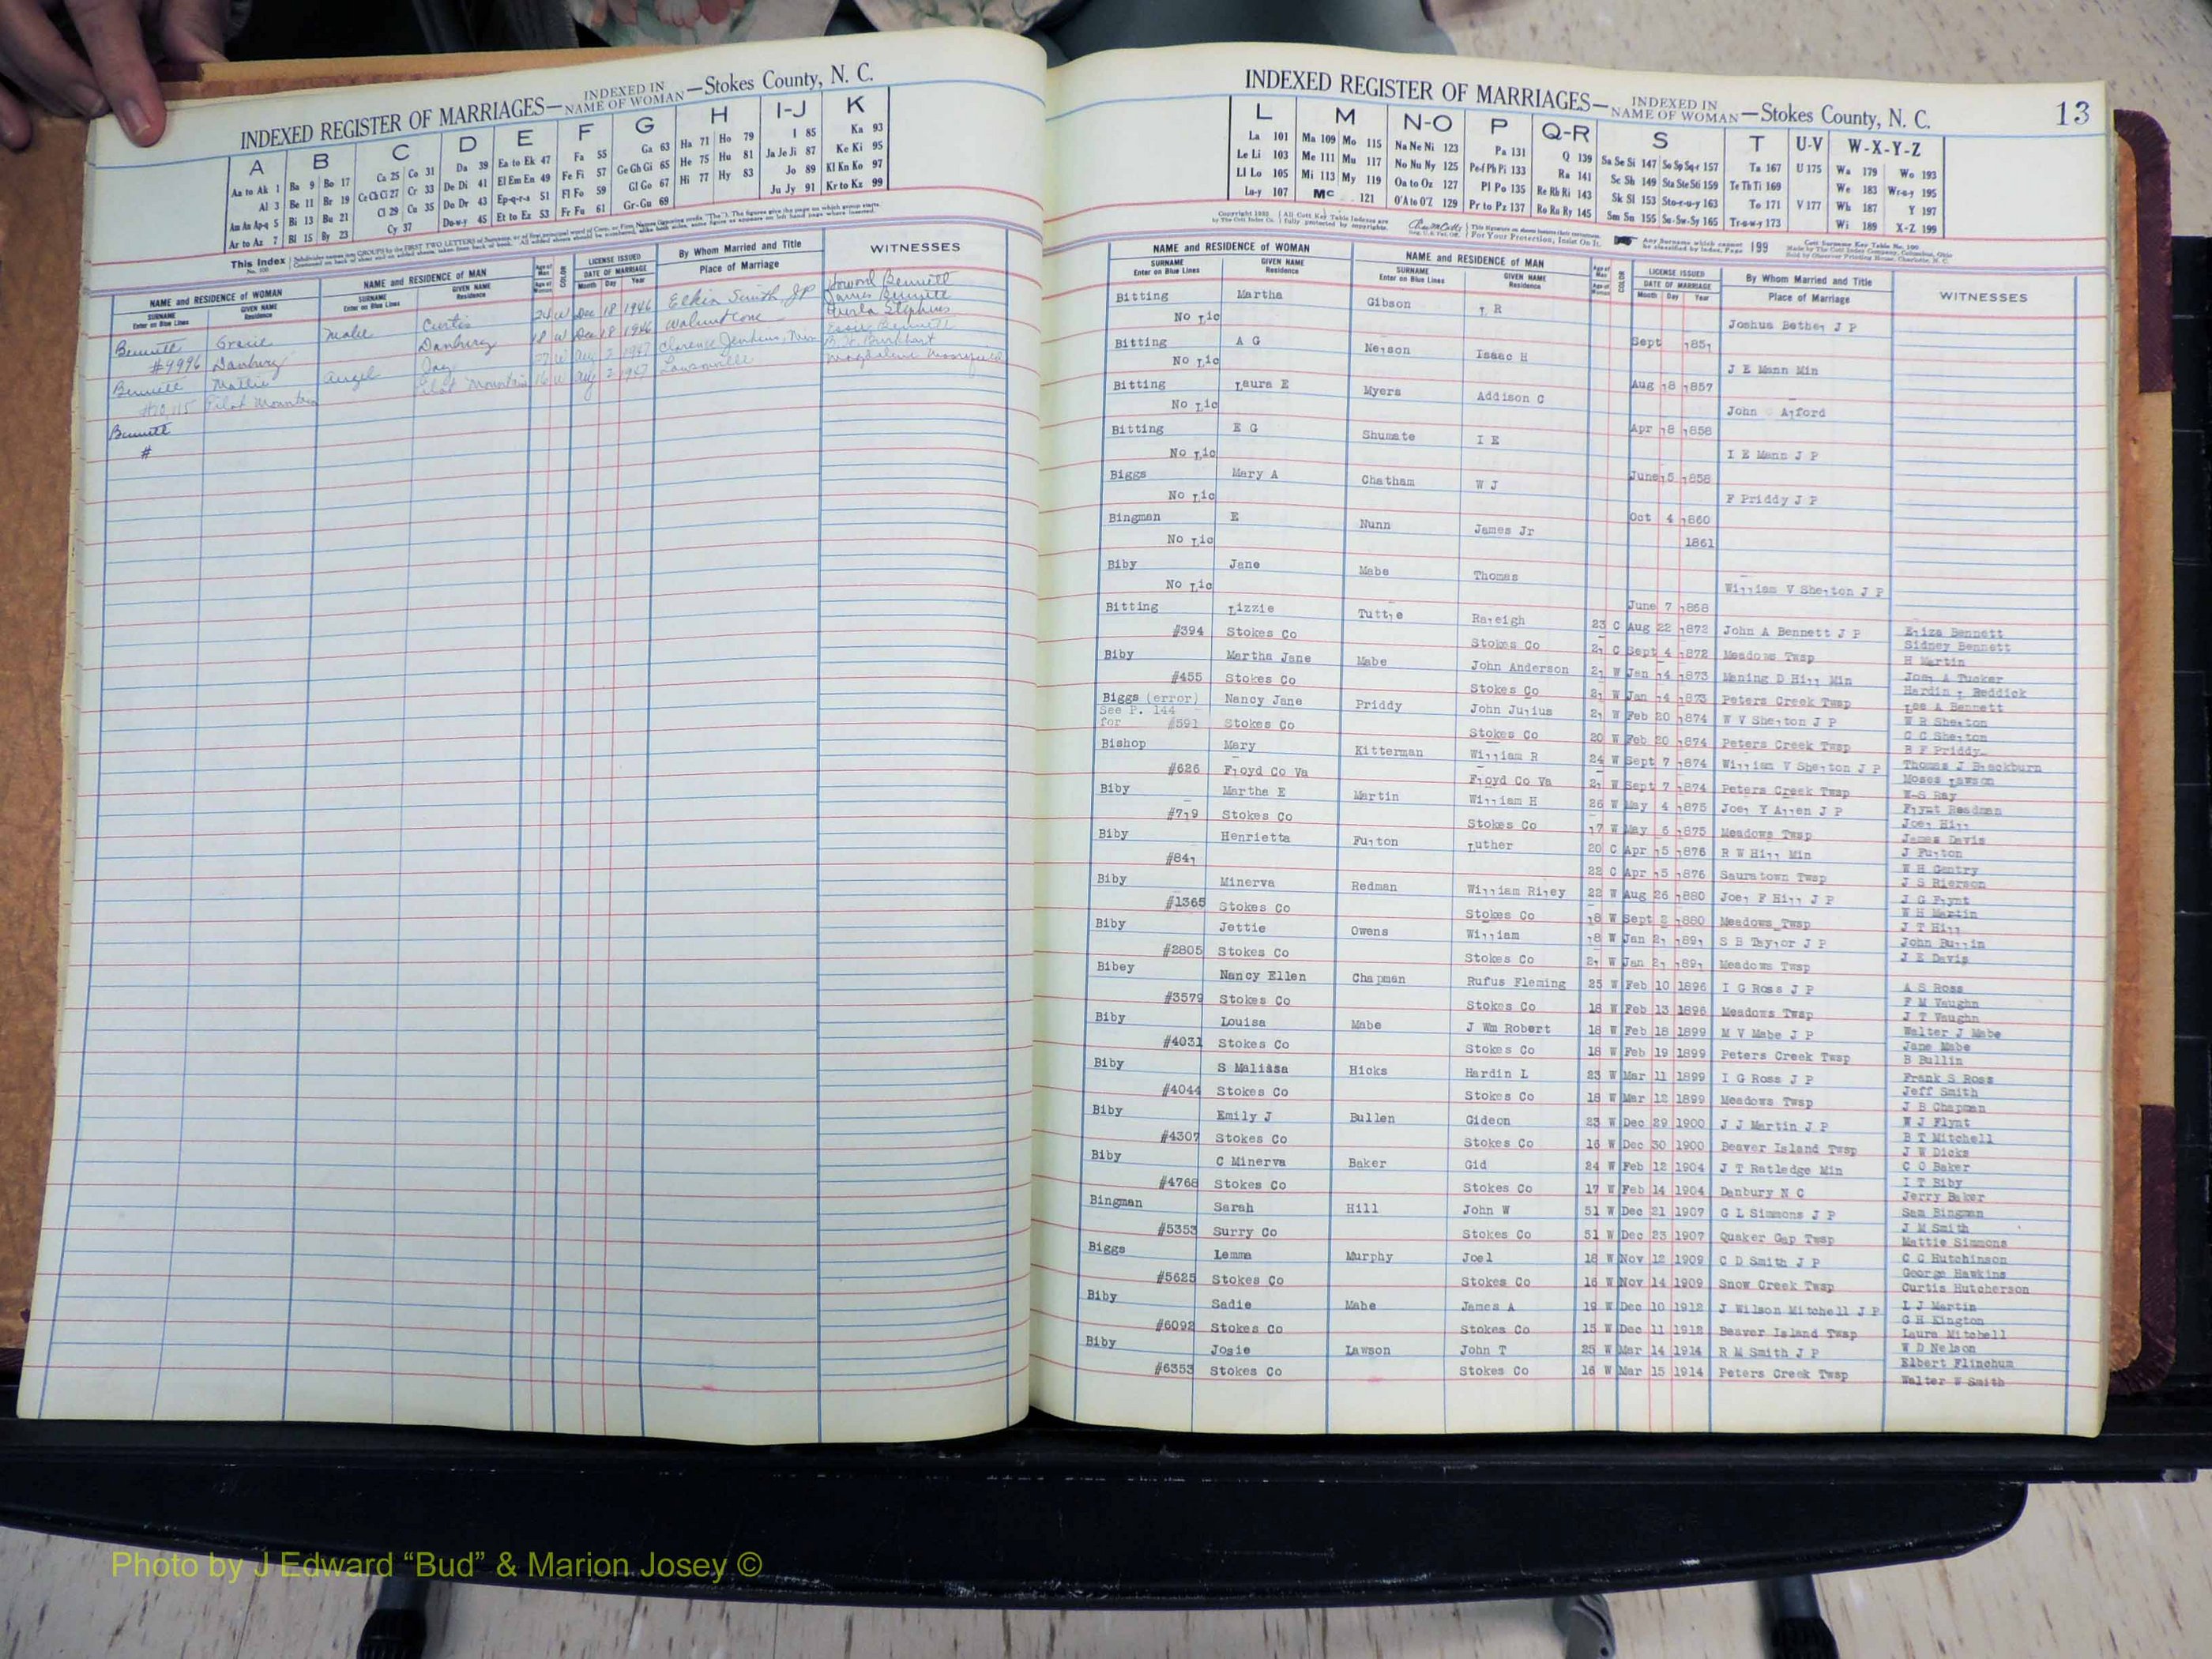 INDEXED REGISTER OF MARRIAGES—INDEXED IN NAME OF WOMAN—Stokes County, N. C.
A B C D E F G H I-J K
Aa to Ak 1 Ba 9 Bo 17 Ca 25 Co 31 Da 39 Ea to Ek 47 Fa 55 Ga 63 Ha 71 Ho 79 I 85 Ka 93
Al 3 Be 11 Br 19 Ce Ch Ci 27 Cr 33 De Di 41 El Em En 49 Fe Fi 57 Ge Gh Gi 65 He 75 Hu 81 Ja Je Ji 87 Ke Ki 95
Am An Ap-q 5 Bi 13 Bu 21 Cl 29 Cu 35 Do Dr 43 Ep-q-r-s 51 Fl Fo 59 Gl Go 67 Hi 77 Hy 83 Jo 89 Kl Kn Ko 97
Ar to Az 7 Bl 15 By 23 Cy 37 Du-w-y 45 Et to Ez 53 Fr Fu 61 Gr-Gu 69 Ju Jy 91 Kr to Kz 99
This Index
NAME and RESIDENCE OF WOMAN NAME and RESIDENCE OF MAN LICENSE ISSUED By Whom Married and Title WITNESSES
SURNAME GIVEN NAME SURNAME GIVEN NAME Age of Man COLOR DATE OF MARRIAGE Place of Marriage
Enter on Blue Lines Residence Enter on Blue Lines Residence Age of Woman Month Day Year
Bennett Gracie Mabe Curtis 24 W Dec 18 1946 Elkin Smith, JP Howard Bennett
James Bennett
#9996 Danbury Danbury 18 W Dec 18 1946 Walnut Cove Stephens
Bennett Mattie Angel Jay W Aug 2 1947 Clarence Jenkins, Min
#10,115 Pilot Mountain Pilot Mountain 16 W Aug 2 1947 Lawsonville Magdalene
Bennett
#
INDEXED REGISTER OF MARRIAGES—INDEXED IN NAME OF WOMAN—Stokes County, N. C. 13
L M N-O P Q-R S T U-V W-X-Y-Z
La 101 Ma 109 Mo 115 Na Ne Ni 123 Pa 131 Q 139 Sa Se Si 147 So Sp Sq-r 157 Ta 167 U 175 Wa 179 Wo 193
Le Li 103 Me 111 Mu 117 No Nu Ny 125 Pe-f Ph Pi 133 Ra 141 Sc Sh 149 Sta Ste Sti 159 Te Th Ti 169 We 183 Wr-u-y 195
Ll Lo 105 Mi 113 My 119 Oa to Oz 127 Pl Po 135 Re Rh Ri 143 Sk Sl 153 Sto-r-u-y 163 To 171 V 177 Wh 187 Y 197
Lu-y 107 Mc 121 O'A to O'Z 129 Pr to Pz 137 Ro Ru Ry 145 Sm Sn 155 Su-Sw-Sy 165 Tr-u-w-y 173 Wi 189 X-Z 199
NAME and RESIDENCE OF WOMAN NAME and RESIDENCE OF MAN LICENSE ISSUED By Whom Married and Title WITNESSES
SURNAME GIVEN NAME SURNAME GIVEN NAME Age of Man COLOR DATE OF MARRIAGE Place of Marriage
Enter on Blue Lines Residence Enter on Blue Lines Residence Age of Woman Month Day Year
Bitting Martha Gibson L R Joshua Bethel J P
No Lic Sept 1851
Bitting A G Nelson Isaac H J E Mann Min
No Lic Aug 18 1857
Bitting Laura E Myers Addison C John Alford
No Lic Apr 18 1858
Bitting E G Shumate I E I E Mann J P
No Lic June 15 1858
Biggs Mary A Chatham W J F Priddy J P
No Lic Oct 4 1860
Bingman E Nunn James Jr
No Lic 1861
Biby Jane Mabe Thomas William V Shelton J P
No Lic June 7 1868
Bitting Lizzie Tuttle Raleigh 23 C Aug 22 1872 John A Bennett J P Eliza Bennett
Sidney Bennett
#394 Stokes Co Stokes Co 21 C Sept 4 1872 Meadows Twsp H Martin
Biby Martha Jane Mabe John Anderson 21 W Jan 14 1873 Maning D Hill Min Joel A Tucker
Hardin L Reddick
#455 Stokes Co Stokes Co 21 W Jan 14 1873 Peters Creek Twsp Lee A Bennett
Biggs (error) Nancy Jane Priddy John Julius 21 W Feb 20 1874 W V Shelton J P W R Shelton
See P. 144 C C Shelton
for #591 Stokes Co Stokes Co 20 W Feb 20 1874 Peters Creek Twsp B F Priddy
Bishop Mary Kitterman William R 24 W Sept 7 1874 William V Shelton J P Thomas J Blackburn
Moses Lawson
#626 Floyd Co Va Floyd Co Va 21 W Sept 7 1874 Peters Creek Twsp W S Ray
Biby Martha E Martin William H 26 W May 4 1875 Joel Y Allen J P Flynt Readman
Joel Hill
#719 Stokes Co Stokes Co 17 W May 6 1875 Meadows Twsp James Davis
Biby Henrietta Fulton Luther 20 C Apr 15 1876 R W Hill Min J Fulton
W H Gentry
#841 22 C Apr 15 1876 Sauratown Twsp J S Rierson
Biby Minerva Redman William Riley 22 W Aug 26 1880 Joel F Hill J P J G Flynt
W H Martin
#1365 Stokes Co Stokes Co 18 W Sept 2 1880 Meadows Twsp J T Hill
Biby Jettie Owens William 18 W Jan 21 1891 S B Taylor J P John Bullin
#2805 Stokes Co Stokes Co 21 W Jan 21 1891 Meadows Twsp J E Davis
Bibey Nancy Ellen Chapman Rufus Fleming 25 W Feb 10 1896 I G Ross J P A S Ross
F M Vaughn
#3579 Stokes Co Stokes Co 18 W Feb 13 1896 Meadows Twsp J T Vaughn
Biby Louisa Mabe J Wm Robert 18 W Feb 18 1899 M V Mabe J P Walter J Mabe
Jane Mabe
#4031 Stokes Co Stokes Co 18 W Feb 19 1899 Peters Creek Twsp B Bullin
Biby S Malissa Hicks Hardin L 23 W Mar 11 1899 I G Ross J P Frank S Ross
Jeff Smith
#4044 Stokes Co Stokes Co 18 W Mar 12 1899 Meadows Twsp J B Chapman
Biby Emily J Bullen Gideon 23 W Dec 29 1900 J J Martin J P W J Flynt
B T Mitchell
#4307 Stokes Co Stokes Co 16 W Dec 30 1900 Beaver Island Twsp J W Dicks
Biby C Minerva Baker Gid 24 W Feb 12 1904 J T Ratledge Min C O Baker
I T Biby
#4768 Stokes Co Stokes Co 17 W Feb 14 1904 Danbury N C Jerry Baker
Bingman Sarah Hill John W 51 W Dec 21 1907 G L Simmons J P Sam Bingman
J M Smith
#5353 Surry Co Stokes Co 51 W Dec 23 1907 Quaker Gap Twsp Mattie Simmons
Biggs Lemma Murphy Joel 18 W Nov 12 1909 C D Smith J P C C Hutchinson
George Hawkins
#5625 Stokes Co Stokes Co 16 W Nov 14 1909 Snow Creek Twsp Curtis Hutcherson
Biby Sadie Mabe James A 19 W Dec 10 1912 J Wilson Mitchell J P L J Martin
G H Kington
#6092 Stokes Co Stokes Co 15 W Dec 11 1912 Beaver Island Twsp Laura Mitchell
Biby Josie Lawson John T 25 W Mar 14 1914 R M Smith J P W D Nelson
Elbert Flinchum
#6353 Stokes Co Stokes Co 16 W Mar 15 1914 Peters Creek Twsp Walter W Smith
Photo by J Edward “Bud” & Marion Josey ©